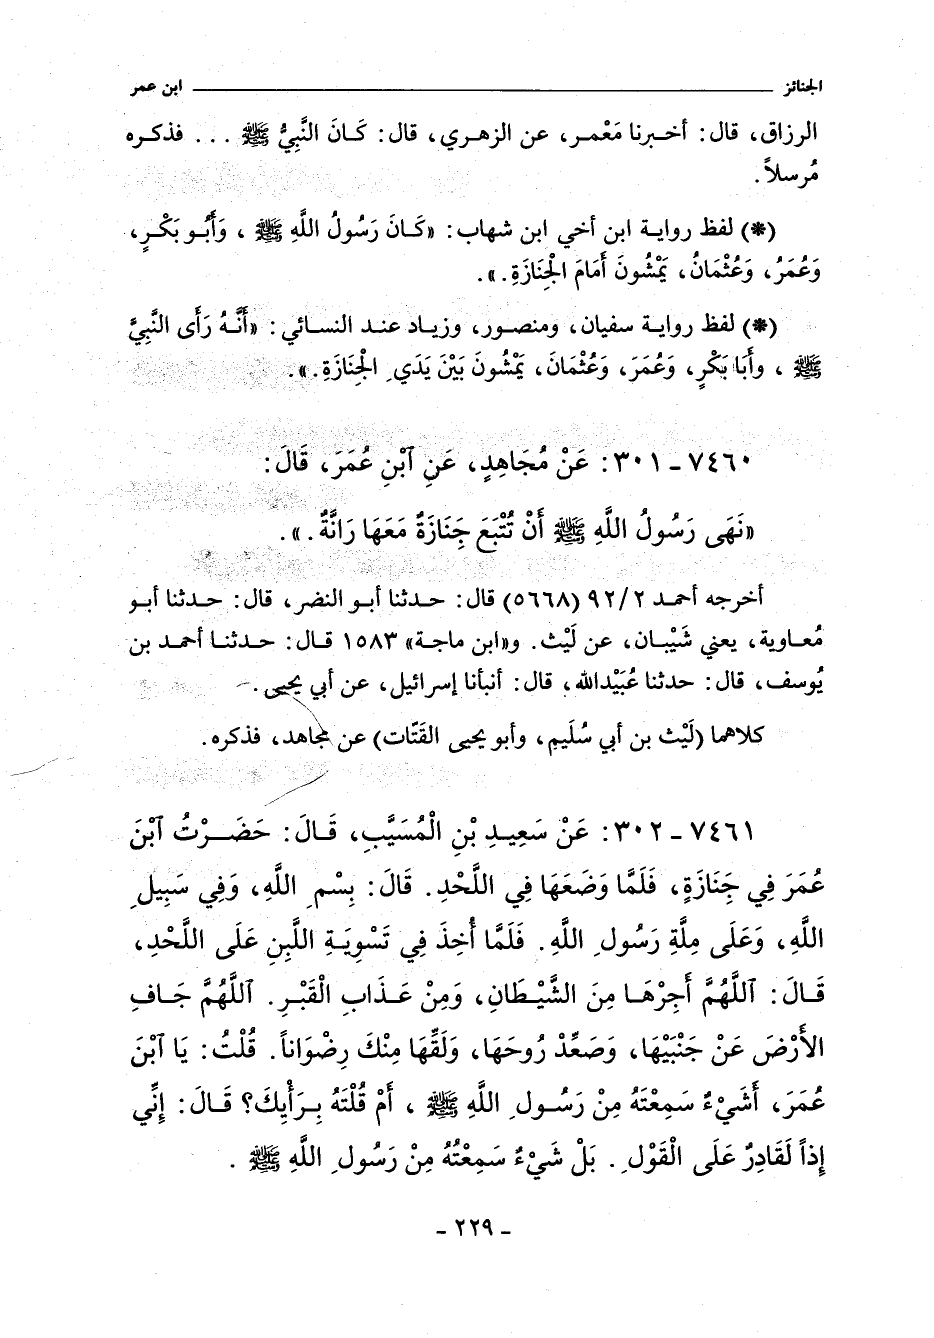 الجنائز ابن عمر
الرزاق، قال: أخبرنا مَعْمر، عن الزهري، قال: كَانَ النَّبِيُّ ﷺ ... فذكره
مُرسلاً.
(*) لفظ رواية ابن أخي ابن شهاب: «كَانَ رَسُولُ اللَّهِ ﷺ، وَأَبُو بَكْرٍ،
وَعُمَرُ، وَعُثْمَانُ، يَمْشُونَ أَمَامَ الْجَنَازَةِ.».
(*) لفظ رواية سفيان، ومنصور، وزياد عند النسائي: «أَنَّهُ رَأَى النَّبِيَّ
ﷺ، وأَبَا بَكْرٍ، وَعُمَرَ، وَعُثْمَانَ، يَمْشُونَ بَيْنَ يَدَيِ الْجَنَازَةِ.».
٧٤٦٠ - ٣٠١: عَنْ مُجَاهِدٍ، عَنِ ٱبْنِ عُمَرَ، قَالَ:
«نَهَى رَسُولُ اللَّهِ ﷺ أَنْ تُتْبَعَ جَنَازَةٌ مَعَهَا رَانَّةٌ.».
أخرجه أحمد ٢/ ٩٢ (٥٦٦٨) قال: حدثنا أبو النضر، قال: حدثنا أبو
مُعاوية، يعني شَيْبان، عن لَيْث. و«ابن ماجة» ١٥٨٣ قال: حدثنا أحمد بن
يُوسف، قال: حدثنا عُبَيْدالله، قال: أنبأنا إسرائيل، عن أبي يحيى.
كلاهما (لَيْث بن أبي سُلَيم، وأبو يحيى القَتّات) عن مجاهد، فذكره.
٧٤٦١ - ٣٠٢: عَنْ سَعِيدِ بْنِ الْمُسَيَّبِ، قَالَ: حَضَرْتُ ٱبْنَ
عُمَرَ فِي جَنَازَةٍ، فَلَمَّا وَضَعَهَا فِي اللَّحْدِ. قَالَ: بِسْمِ اللَّهِ، وَفِي سَبِيلِ
اللَّهِ، وَعَلَى مِلَّةِ رَسُولِ اللَّهِ. فَلَمَّا أُخِذَ فِي تَسْوِيَةِ اللَّبِنِ عَلَى اللَّحْدِ،
قَالَ: ٱللَّهُمَّ أَجِرْهَا مِنَ الشَّيْطَانِ، وَمِنْ عَذَابِ الْقَبْرِ. ٱللَّهُمَّ جَافِ
الأَرْضَ عَنْ جَنْبَيْهَا، وَصَعِّدْ رُوحَهَا، وَلَقِّهَا مِنْكَ رِضْوَاناً. قُلْتُ: يَا ٱبْنَ
عُمَرَ، أَشَيْءٌ سَمِعْتَهُ مِنْ رَسُولِ اللَّهِ ﷺ، أَمْ قُلْتَهُ بِرَأْيِكَ؟ قَالَ: إِنِّي
إِذاً لَقَادِرٌ عَلَى الْقَوْلِ. بَلْ شَيْءٌ سَمِعْتُهُ مِنْ رَسُولِ اللَّهِ ﷺ.
- ٢٢٩ -